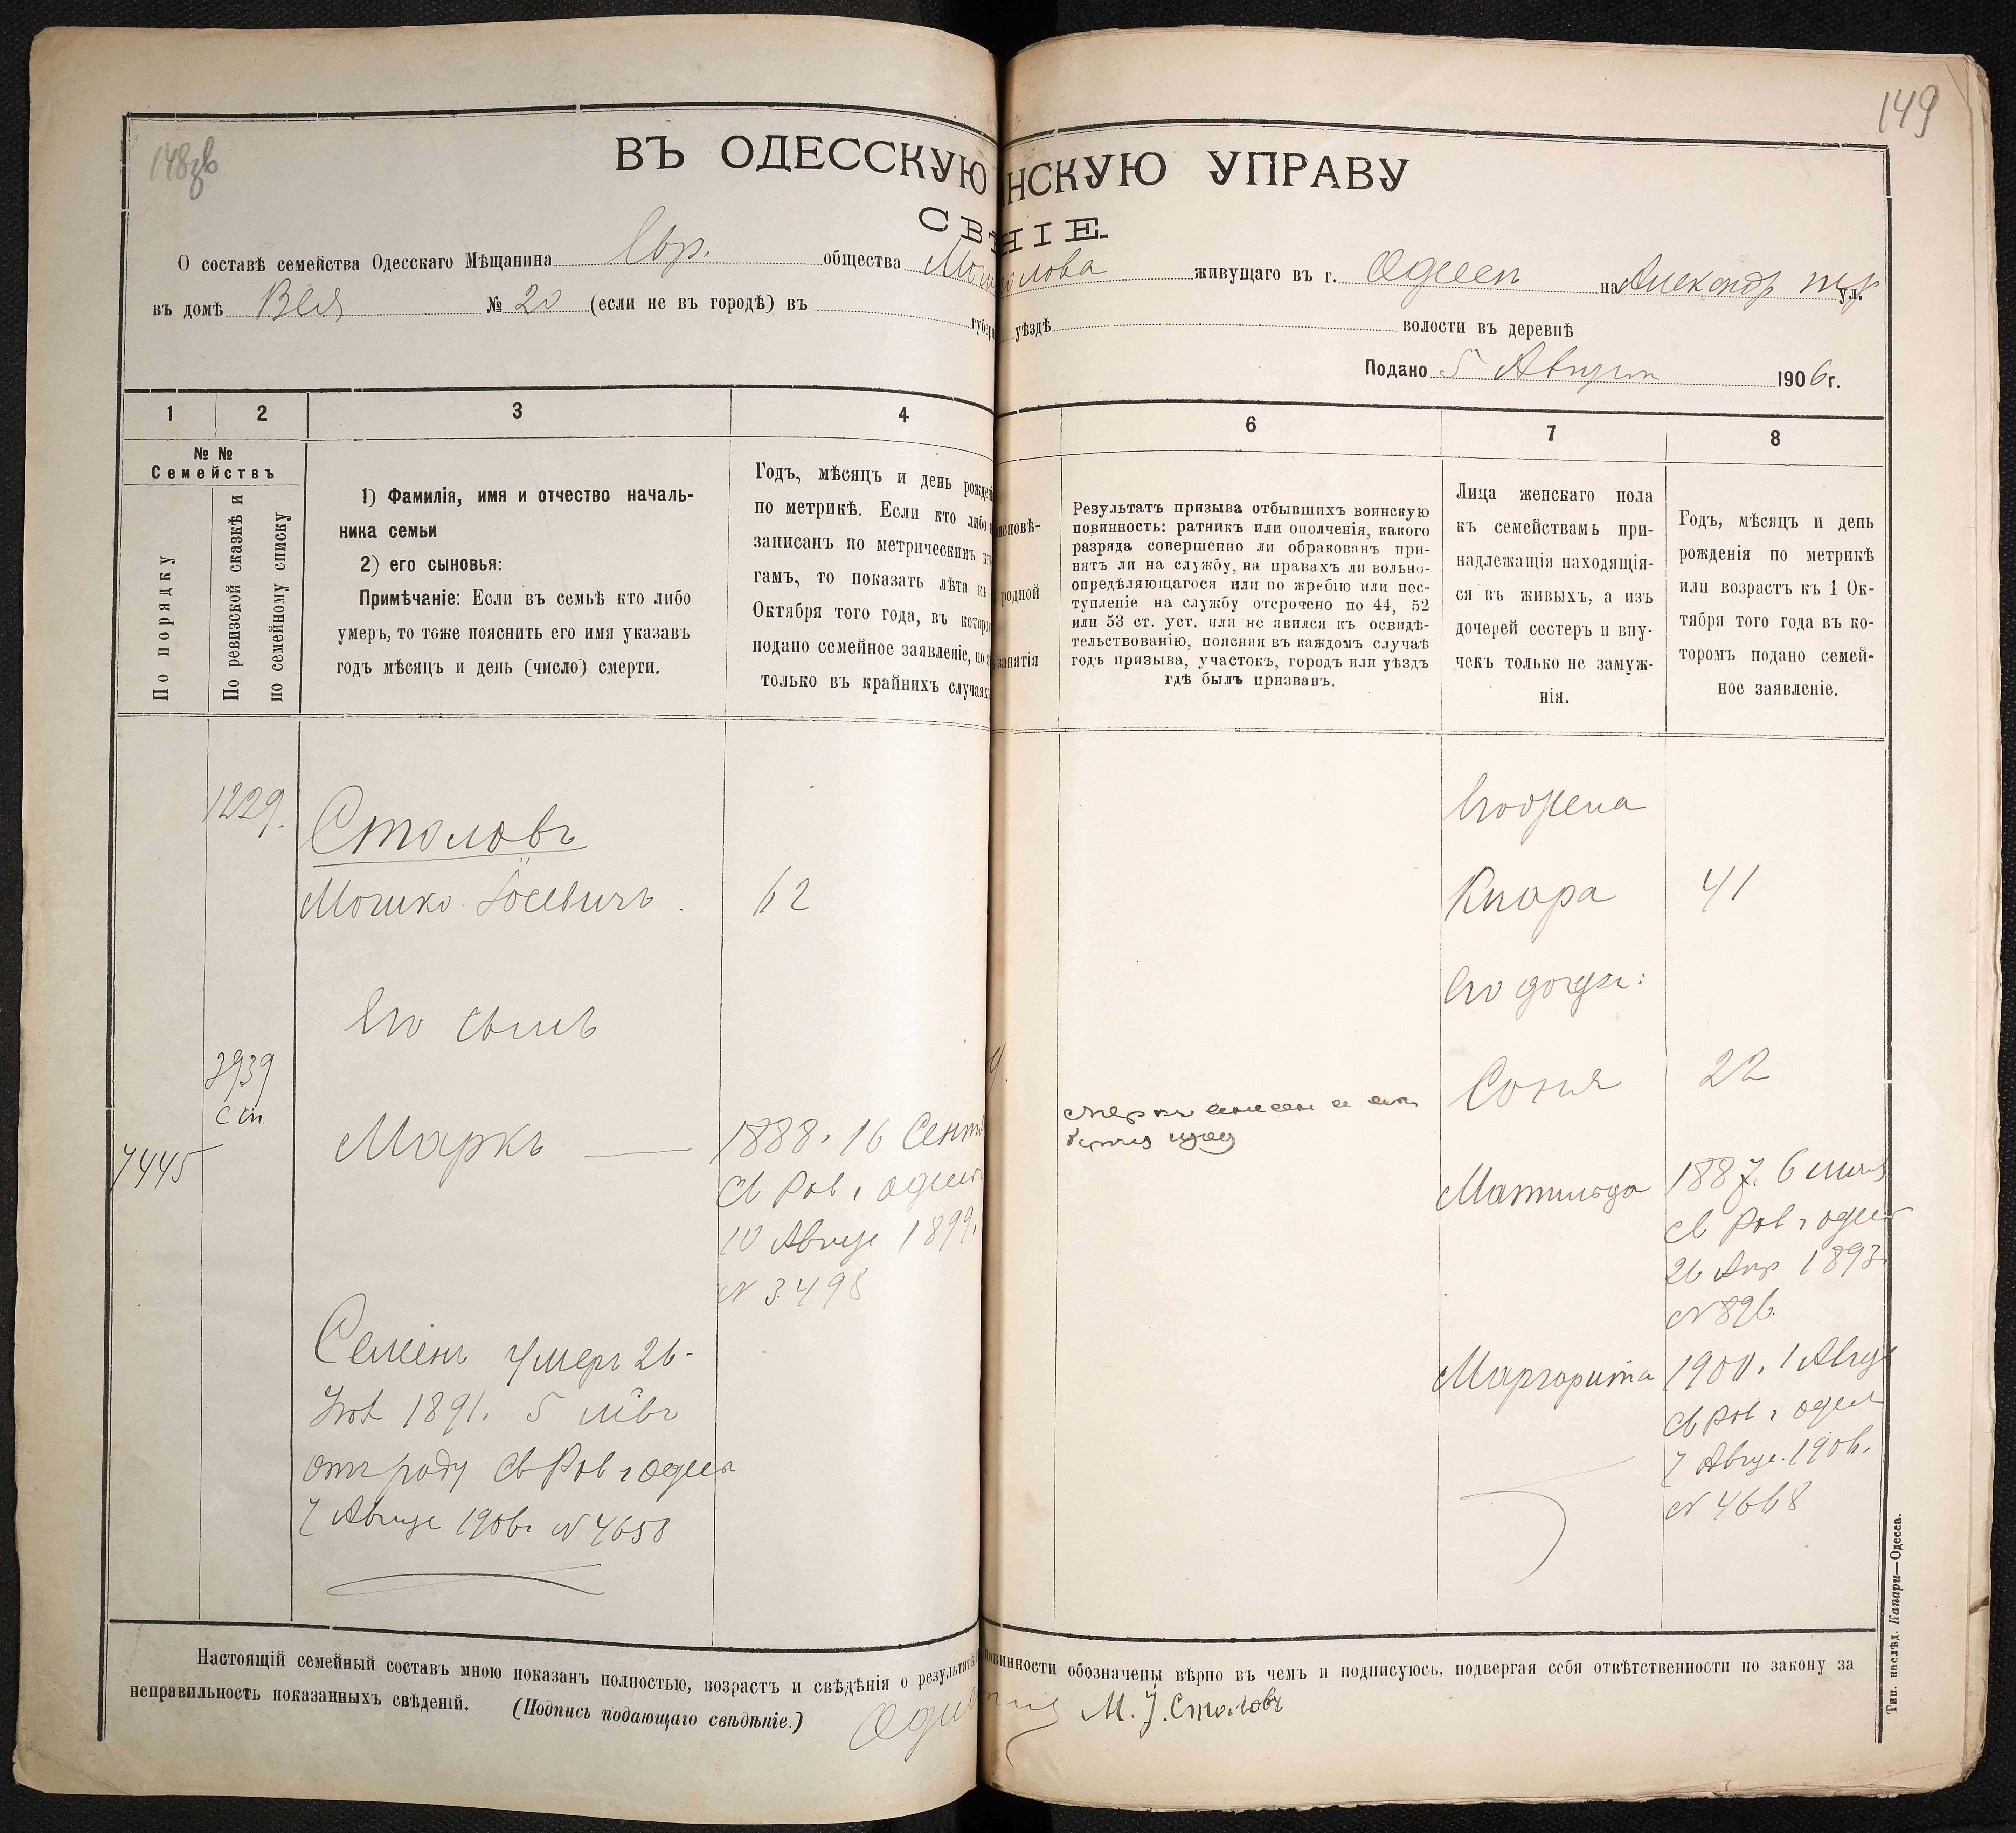 149
148
ВЪ ОДЕССКУЮ НСКУЮ УПРАВУ
СВѢ НІЕ.
О составѣ семейства Одесскаго Мѣщанина Евр. общества живущаго въ г. Одессѣ на Александр ул.
въ домѣ № 20 (если не въ городѣ) въ губер уѣздѣ волости въ деревнѣ
Подано 5 Августа 1906 г.
1 2 3 4 6 7 8
№ №
Семействъ
По порядку
По ревизской сказкѣ и
по семейному списку
1) Фамилія, имя и отчество началь-
ника семьи
2) его сыновья:
Примѣчаніе: Если въ семьѣ кто либо
умеръ, то тоже пояснить его имя указавъ
годъ мѣсяцъ и день (число) смерти.
Годъ, мѣсяцъ и день рожден
по метрикѣ. Если кто либо
записанъ по метрическимъ кн
гамъ, то показать лѣта къ
Октября того года, въ которо
подано семейное заявленіе, но
только въ крайнихъ случаяхъ
исповѣ-
родной
занятія
Результатъ призыва отбывшихъ воинскую
повинность: ратникъ или ополченія, какого
разряда совершенно ли обракованъ при-
нятъ ли на службу, на правахъ ли вольно-
опредѣляющагося или по жребію или пос-
тупленіе на службу отсрочено по 44, 52
или 53 ст. уст. или не явился къ освидѣ-
тельствованію, поясняя въ каждомъ случаѣ
годъ призыва, участокъ, городъ или уѣздъ
гдѣ былъ призванъ.
Лица женскаго пола
къ семействамъ при-
надлежащія находящія-
ся въ живыхъ, а изъ
дочерей сестеръ и вну-
чекъ только не замуж-
нія.
Годъ, мѣсяцъ и день
рожденія по метрикѣ
или возрастъ къ 1 Ок-
тября того года въ ко-
торомъ подано семей-
ное заявленіе.
1229.
Столовъ
Мошко Іосевичъ. 62
Его сынъ
3939
сп
7445
Маркъ — 1888. 16 Сент
Св Рав г Одесс
10 Авгус 1899.
N 3498
Семенъ умеръ 26-
1891. 5 лѣтъ
отъ роду Св Рав г Одесс
7 Авгус 1906 г N 4658
Его жена
Клара 41
Его дочери:
Соня 22
Матильда 1887. 6
Св Рав г Одесс
26 Апр 1893
N 896.
Маргарита 1900. 1 Авгус
Св Рав г Одесс
7 Авгус. 1906.
N 4668
Настоящій семейный составъ мною показанъ полностью, возрастъ и свѣдѣнія о результатѣ повинности обозначены вѣрно въ чемъ и подписуюсь, подвергая себя отвѣтственности по закону за
неправильность показанныхъ свѣденій. (Подпись подающаго свѣдѣніе.) М. І. Столовъ
Тип. наслѣд. Капари—Одесса.